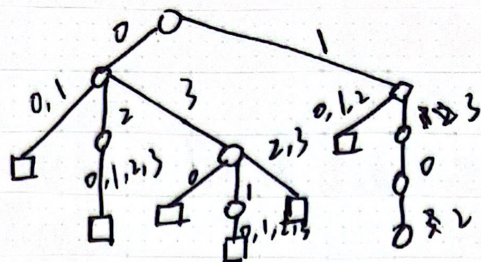 0 1
0,1 2 3 0,1,2 3
0,1,2,3 0 1 2,3 0
2